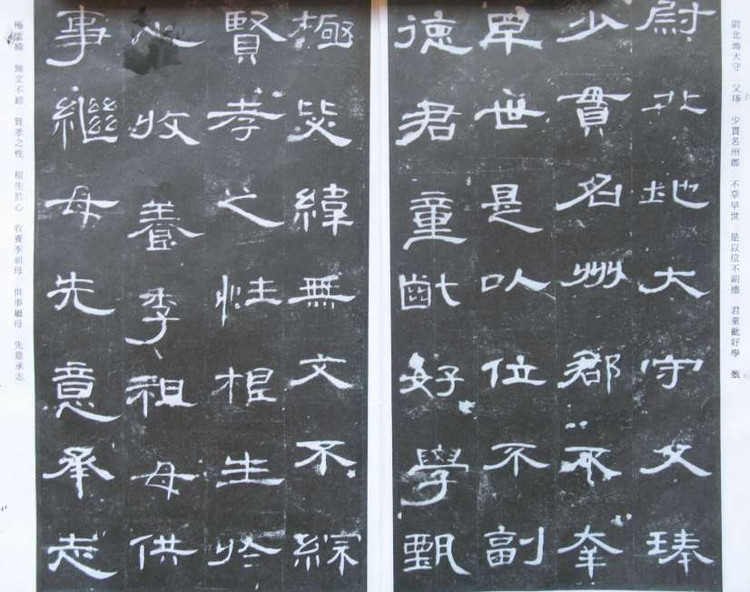 尉北地大守 父琫 少貫名州郡 不幸早世 是以位不副德 君童齔好學 甄
尉北地大守父琫
少貫名州郡不幸
早世是以位不副
德君童齔好學甄
極毖緯無文不綜
賢孝之性根生於
心收養季祖母供
事繼母先意承志
極毖緯 無文不綜 賢孝之性 根生於心 收養季祖母 供事繼母 先意承志